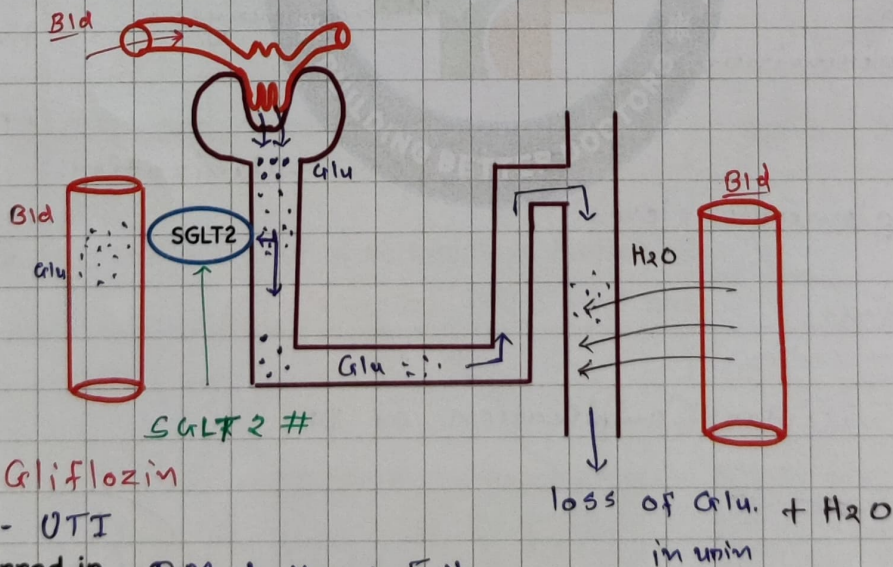 Bld
Glu
Bld
Glu
SGLT2
Bld
H2O
Glu
SGLT2 #
Gliflozin
- UTI
loss of Glu. + H2O
in urin